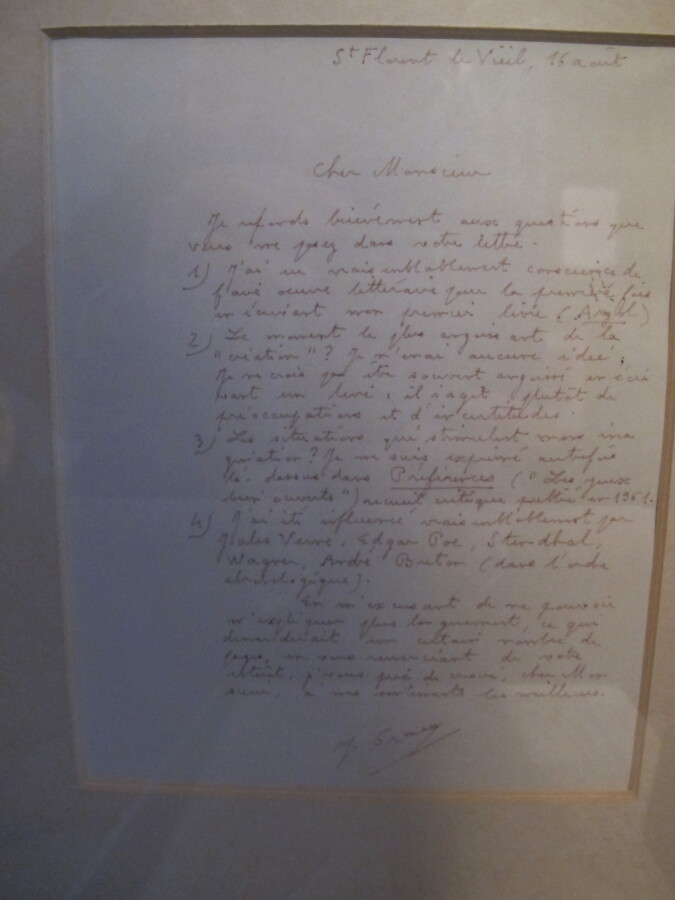 St Florent le Vieil, 16 août
Cher Monsieur
Je réponds brièvement aux questions que
vous me posez dans votre lettre.
1) J'ai eu vraisemblablement conscience de
faire œuvre littéraire pour la première fois
en écrivant mon premier livre (Argol)
2) Le moment le plus angoissant de la
"création"? Je n'en ai aucune idée ;
Je ne crois pas être souvent angoissé en écri
vant un livre : il s'agit plutôt de
préoccupations et d'incertitudes.
3) Les situations qui stimulent mon ima
gination? Je me suis exprimé autrefois
là-dessus dans Préférences ("Les yeux
bien ouverts") recueil critique publié en 1961.
4) J'ai été influencé vraisemblablement par
Jules Verne, Edgar Poe, Stendhal,
Wagner, André Breton (dans l'ordre
chronologique).
En m'excusant de ne pouvoir
m'expliquer plus longuement, ce que
demanderait un certain nombre de
pages, en vous remerciant de votre
intérêt, je vous prie de croire, cher Mon
sieur, à mes sentiments les meilleurs.
J. Gracq